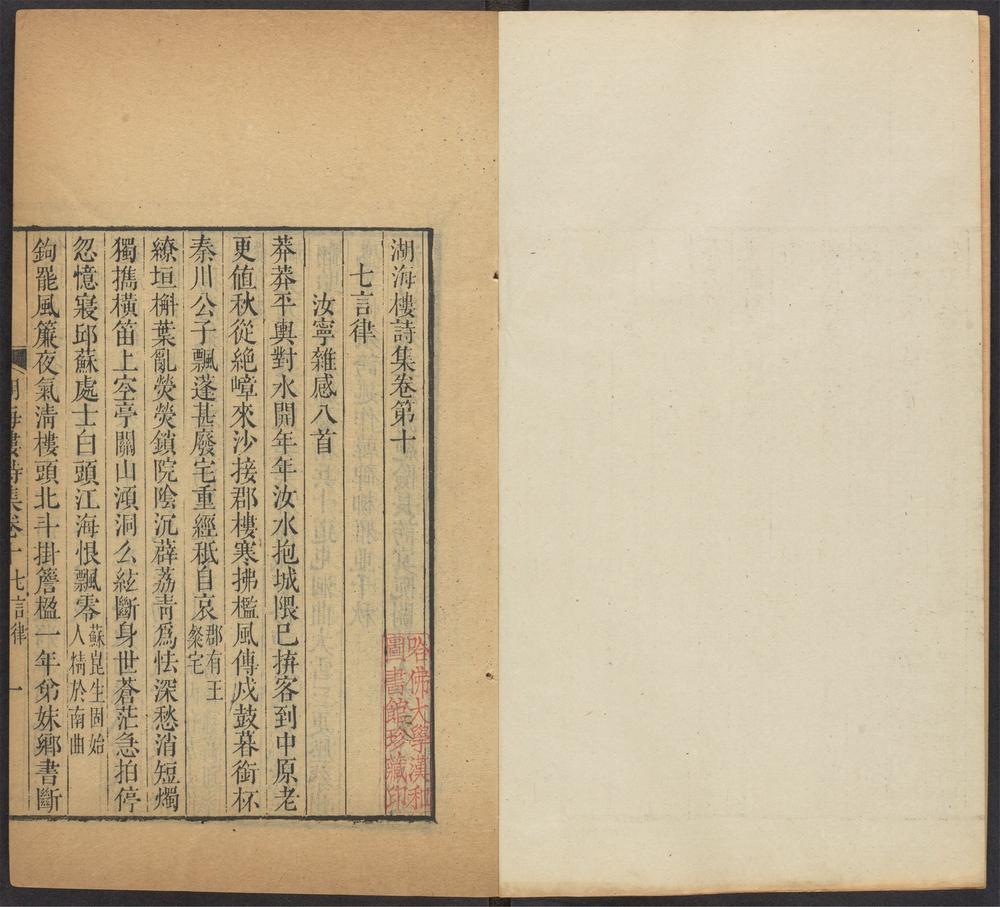 湖海樓詩集卷第十
七言律
汝寧雜感八首
莽莽平輿對水開年年汝水抱城隈已拚客到中原老
更值秋從絶嶂來沙接郡樓寒拂檻風傳戍鼓暮銜杯
秦川公子飄蓬甚廢宅重經秪自哀郡有王粲宅
繚垣槲葉亂熒熒鎖院陰沉薜荔靑爲怯深愁消短燭
獨擕橫笛上空亭關山澒洞么絃斷身世蒼茫急拍停
忽憶寢邱蘇處士白頭江海恨飄零蘇崑生固始人精於南曲
鉤罷風簾夜氣淸樓頭北斗掛簷楹一年弟妹鄉書斷
湖海樓詩集卷十七言律 一
哈佛大學漢和
圖書館珍藏印